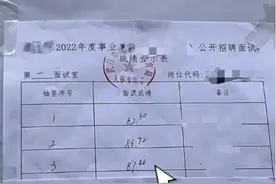 2022年度事业单位 公开招聘面试
成绩公示表
第一面试室 岗位代码:
抽签序号 面试成绩 备注
1 82.50
2 86.72
3 87.46